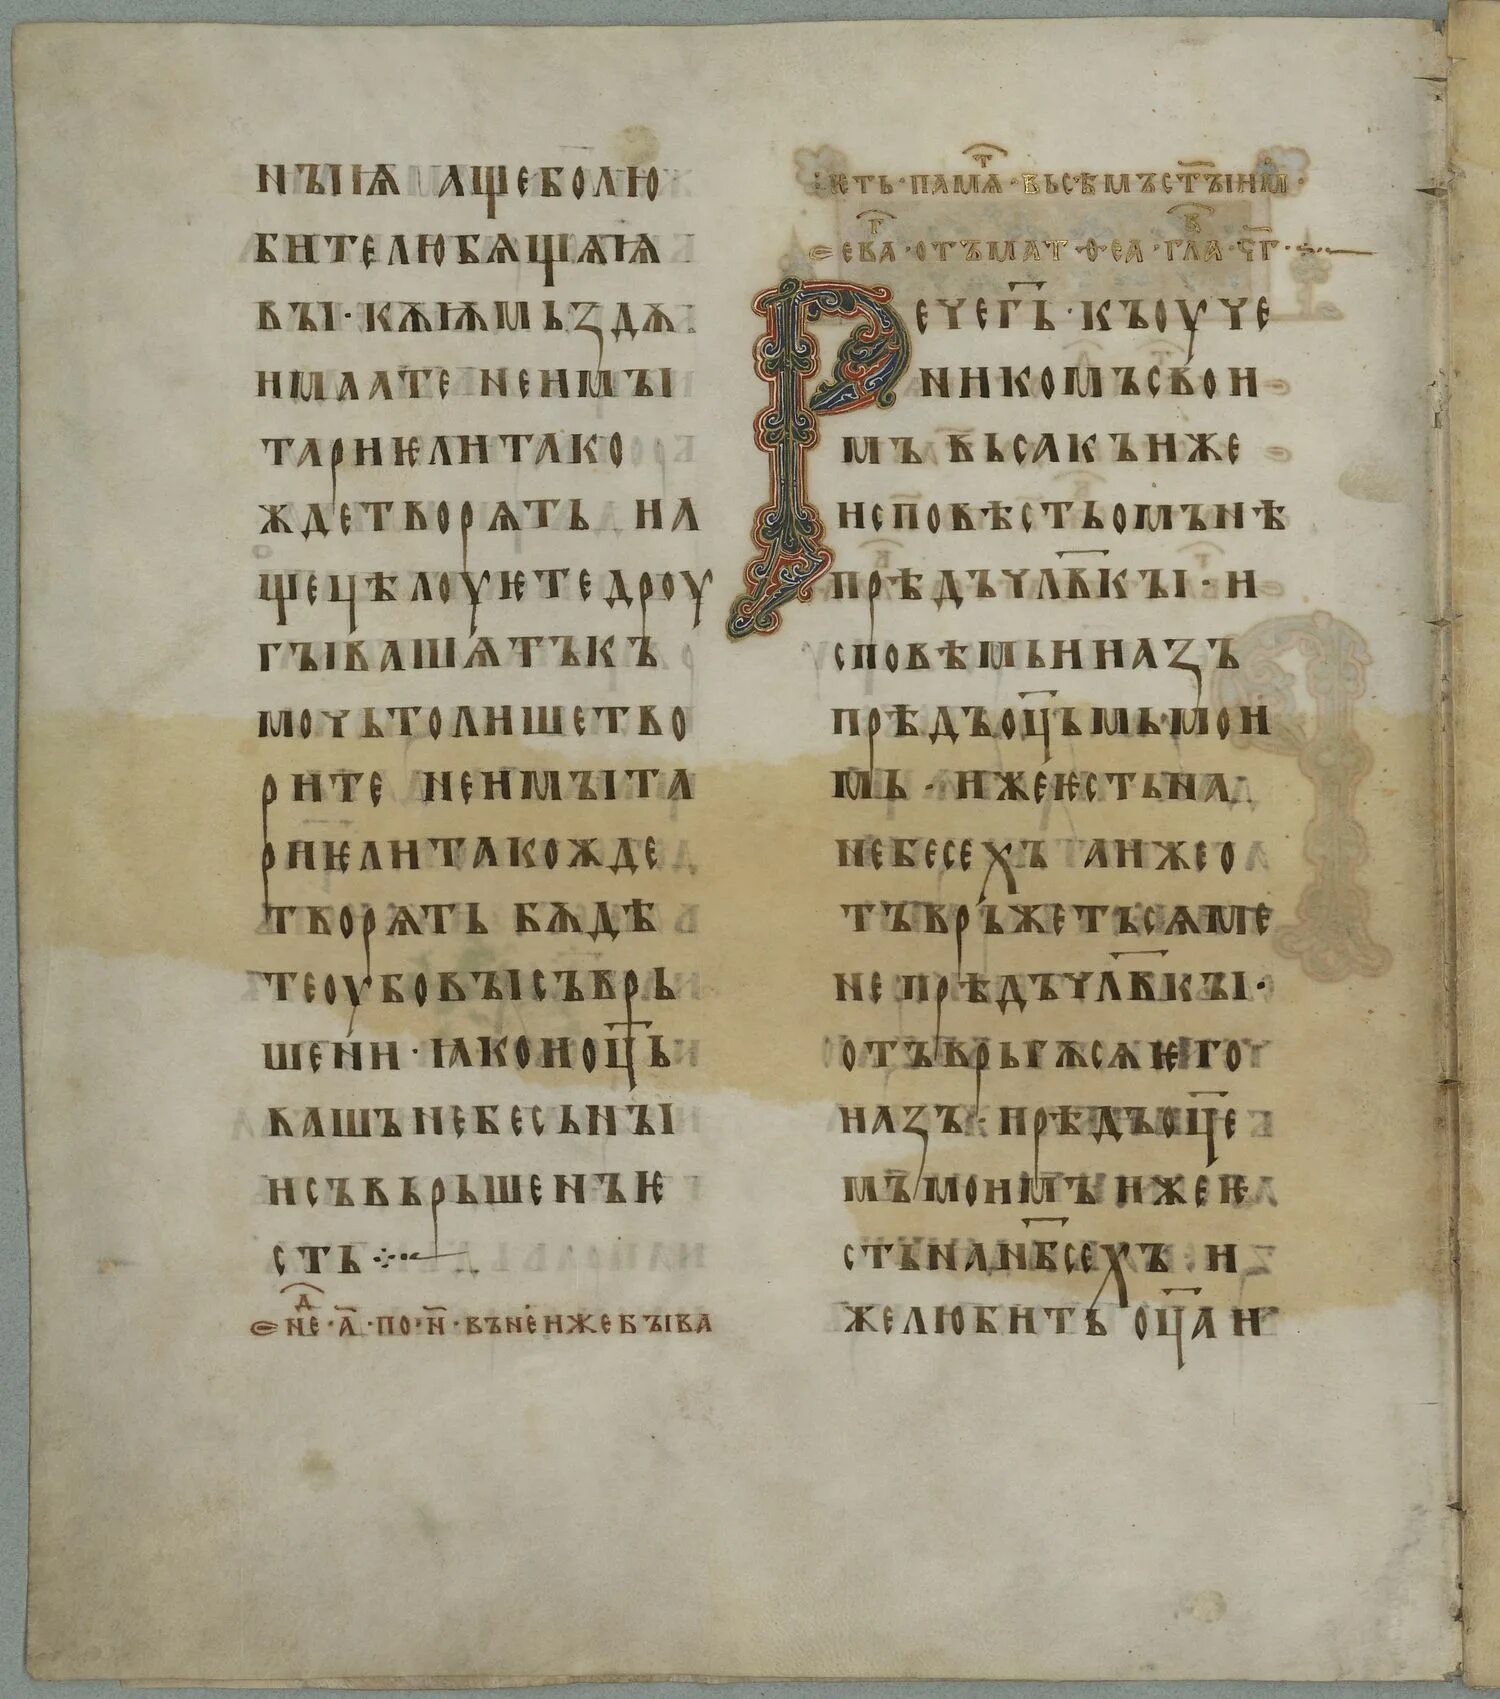 нъіꙗ аще болю
бите любѧщѧѩ
въі · кѫѭ мьздѫ
имаате не и мъі
тариѥ ли тако
жде творѧть на
ще цѣлоуѥте дроу
гъі вашѧ тъкъ
мочь то лише тво
рите не и мъіта
риѥ ли такожде
творѧть бѫдѣ
те оубо въі съврь
шени · ꙗко и оц҃ь
вашъ небесьнъі
и съвьрьшенъ ѥ
сть ⁘
не ⷣ · а҃ · по · н҃ · въ неиже бъіва
ѥть · памѧ ⷮ · вьсѣмъ ст҃ъіим ·
ев ⷢ а · отъ мат · ѳеа · гла ⷡ · ч҃г ·
Рече г҃ь · къ оуче
никомъ свои
мъ вьсакъ иже
исповѣсть о мънѣ
прѣдъ чл҃вкъі · и
сповѣмь и и азъ
прѣдъ оц҃ьмь мои
мь · иже ѥсть на
небесехъ а иже о
тъвръжеть сѧ ме
не прѣдъ чл҃вкъі ·
отъврьгѫ сѧ ѥго
и азъ · прѣдъ оц҃е
мъ моимъ иже ѥ
сть на нб҃сехъ и
же любить оц҃а и